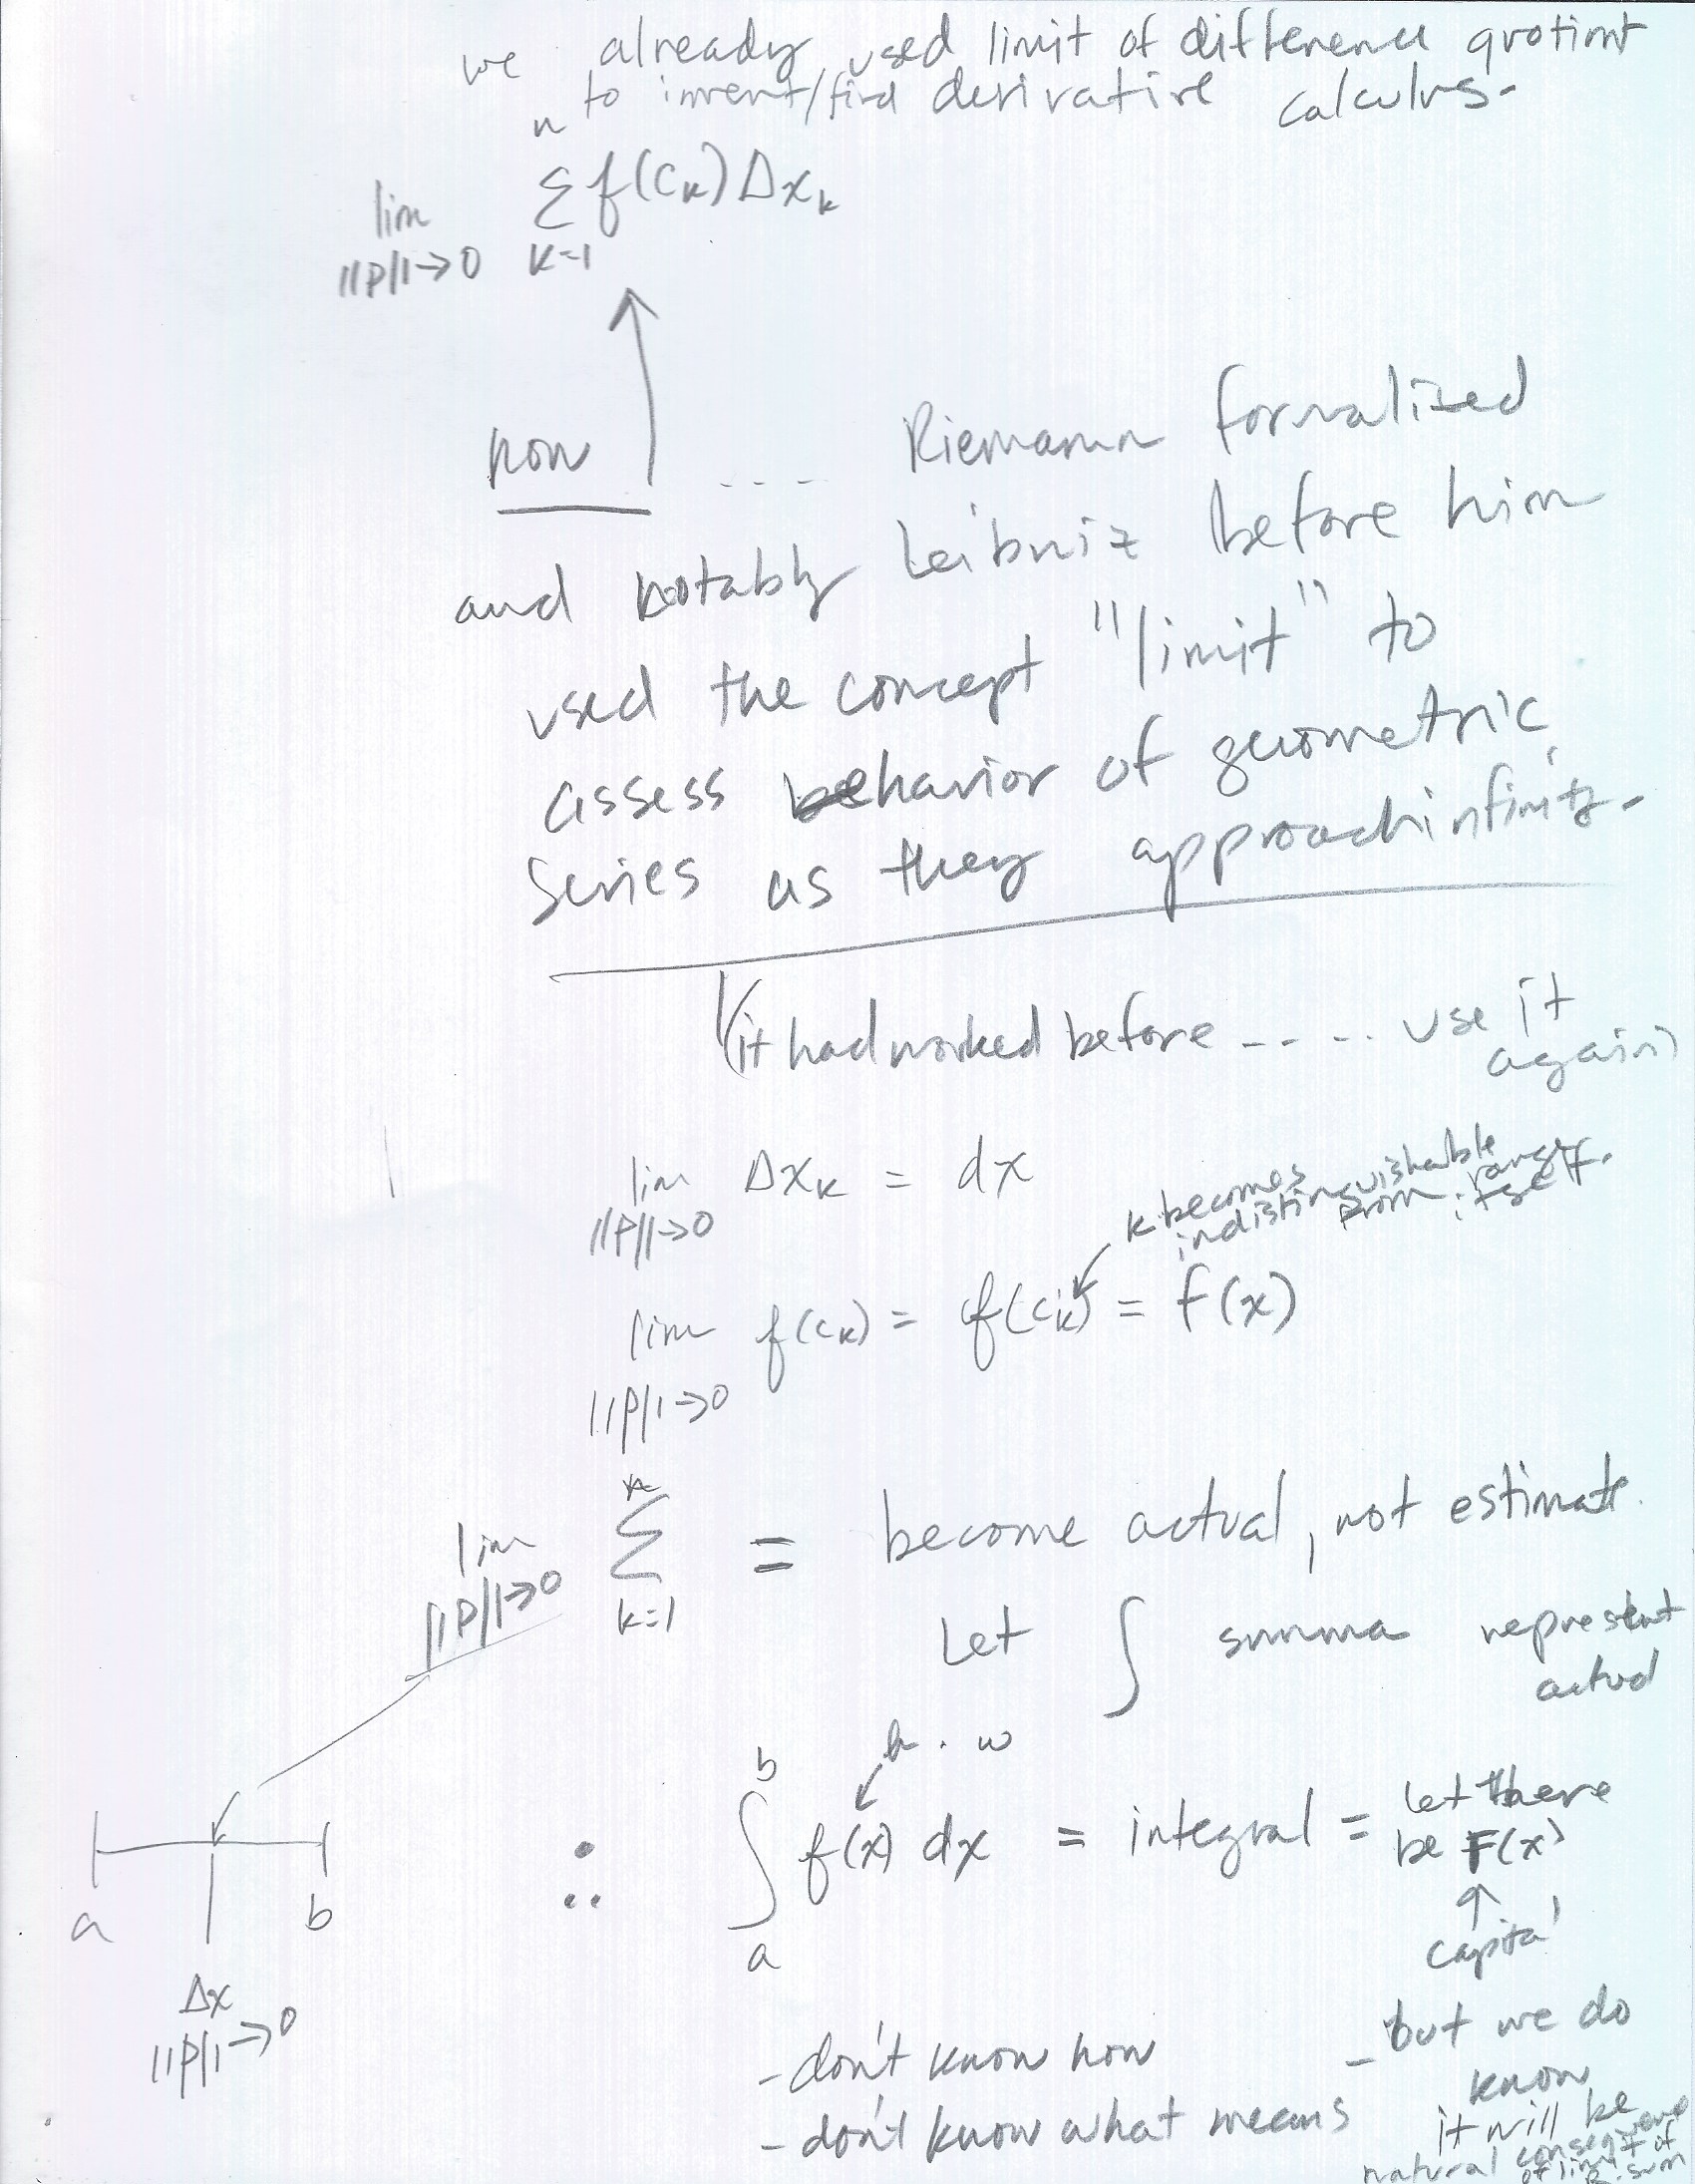 we already used limit of difference quotient
to invent/find derivative calculus.
n
lim Σ f(cₖ) Δxₖ
||P||→0 k=1
now .... Riemann formalized
and notably Leibniz before him
used the concept "limit" to
assess behavior of geometric
series as they approach infinity.
(it had worked before ..... use it
again)
lim Δxₖ = dx
||P||→0
k becomes
indistinguishable
from range
itself.
lim f(cₖ) = f(cₖ) = f(x)
||P||→0
n
lim Σ = become actual, not estimate.
||P||→0 k=1
Let ∫ summa represent
actual
h · w
b
∴ ∫ f(x) dx = integral = let there
be F(x)
a
capital
a b
Δx
||P||→0
- don't know how
- don't know what means
- but we do
know
it will be
natural consequence
of limit of
R. sum